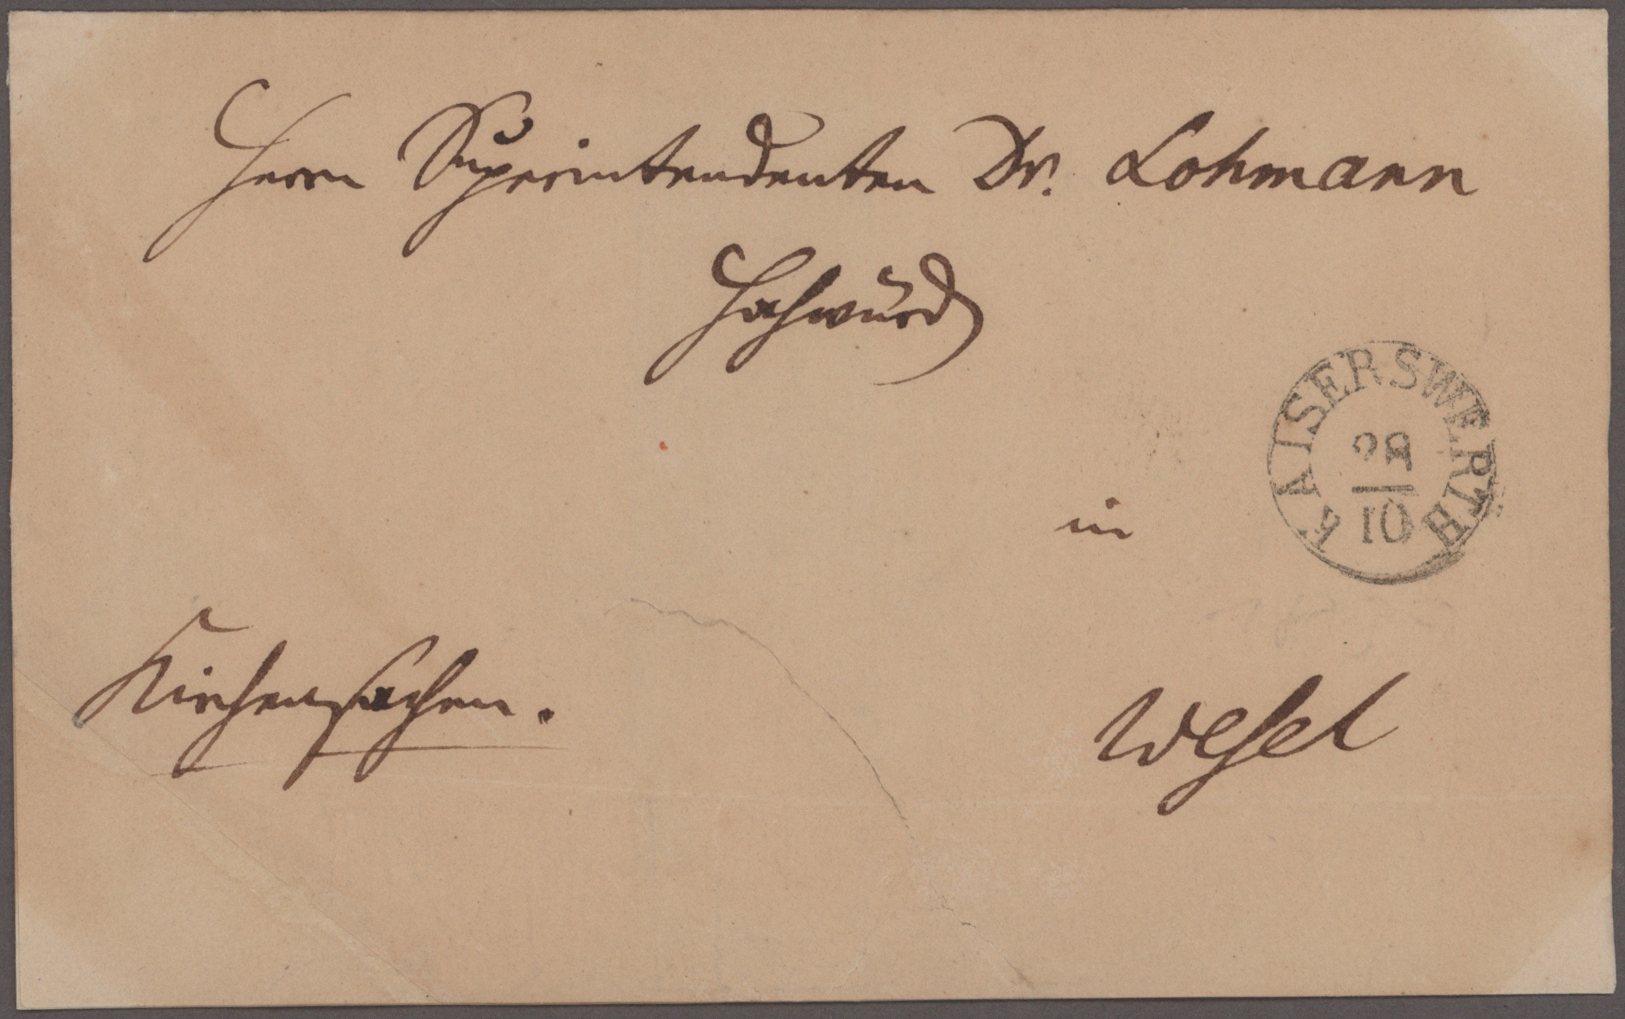 Herrn Superintendenten Dr. Lohmann
Hochwürd
KAISERSWERTH
28
10
in
Kirchensachen.
Wesel